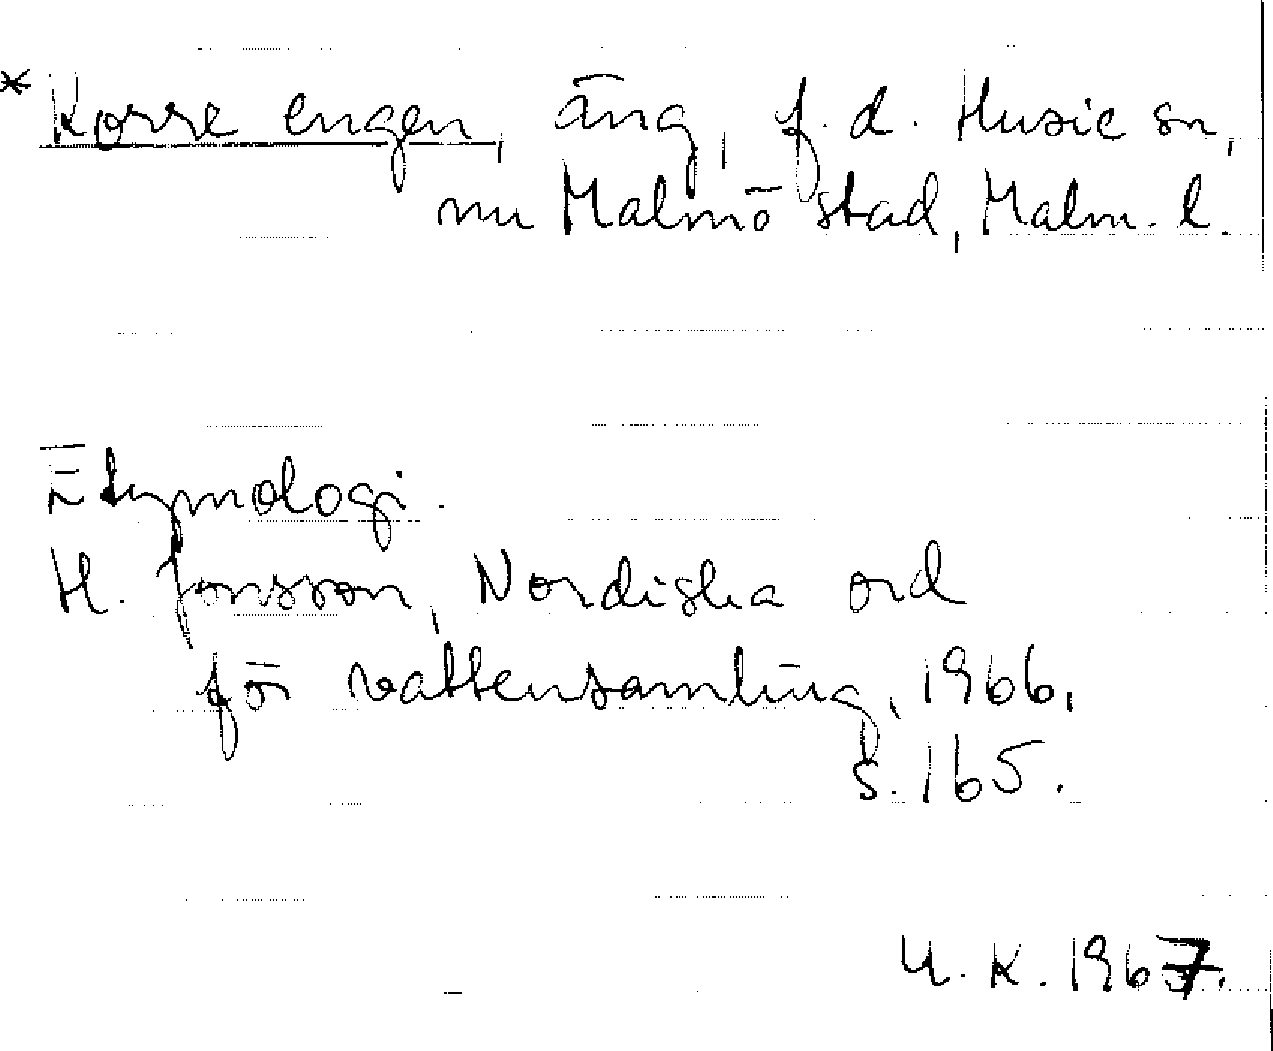 * Korre engen, äng, f.d. Husie sn,
nu Malmö stad, Malm. l.
Etymologi.
H. Jonsson, Nordiska ord
för vattensamling, 1966,
s. 165.
U.K. 1967.